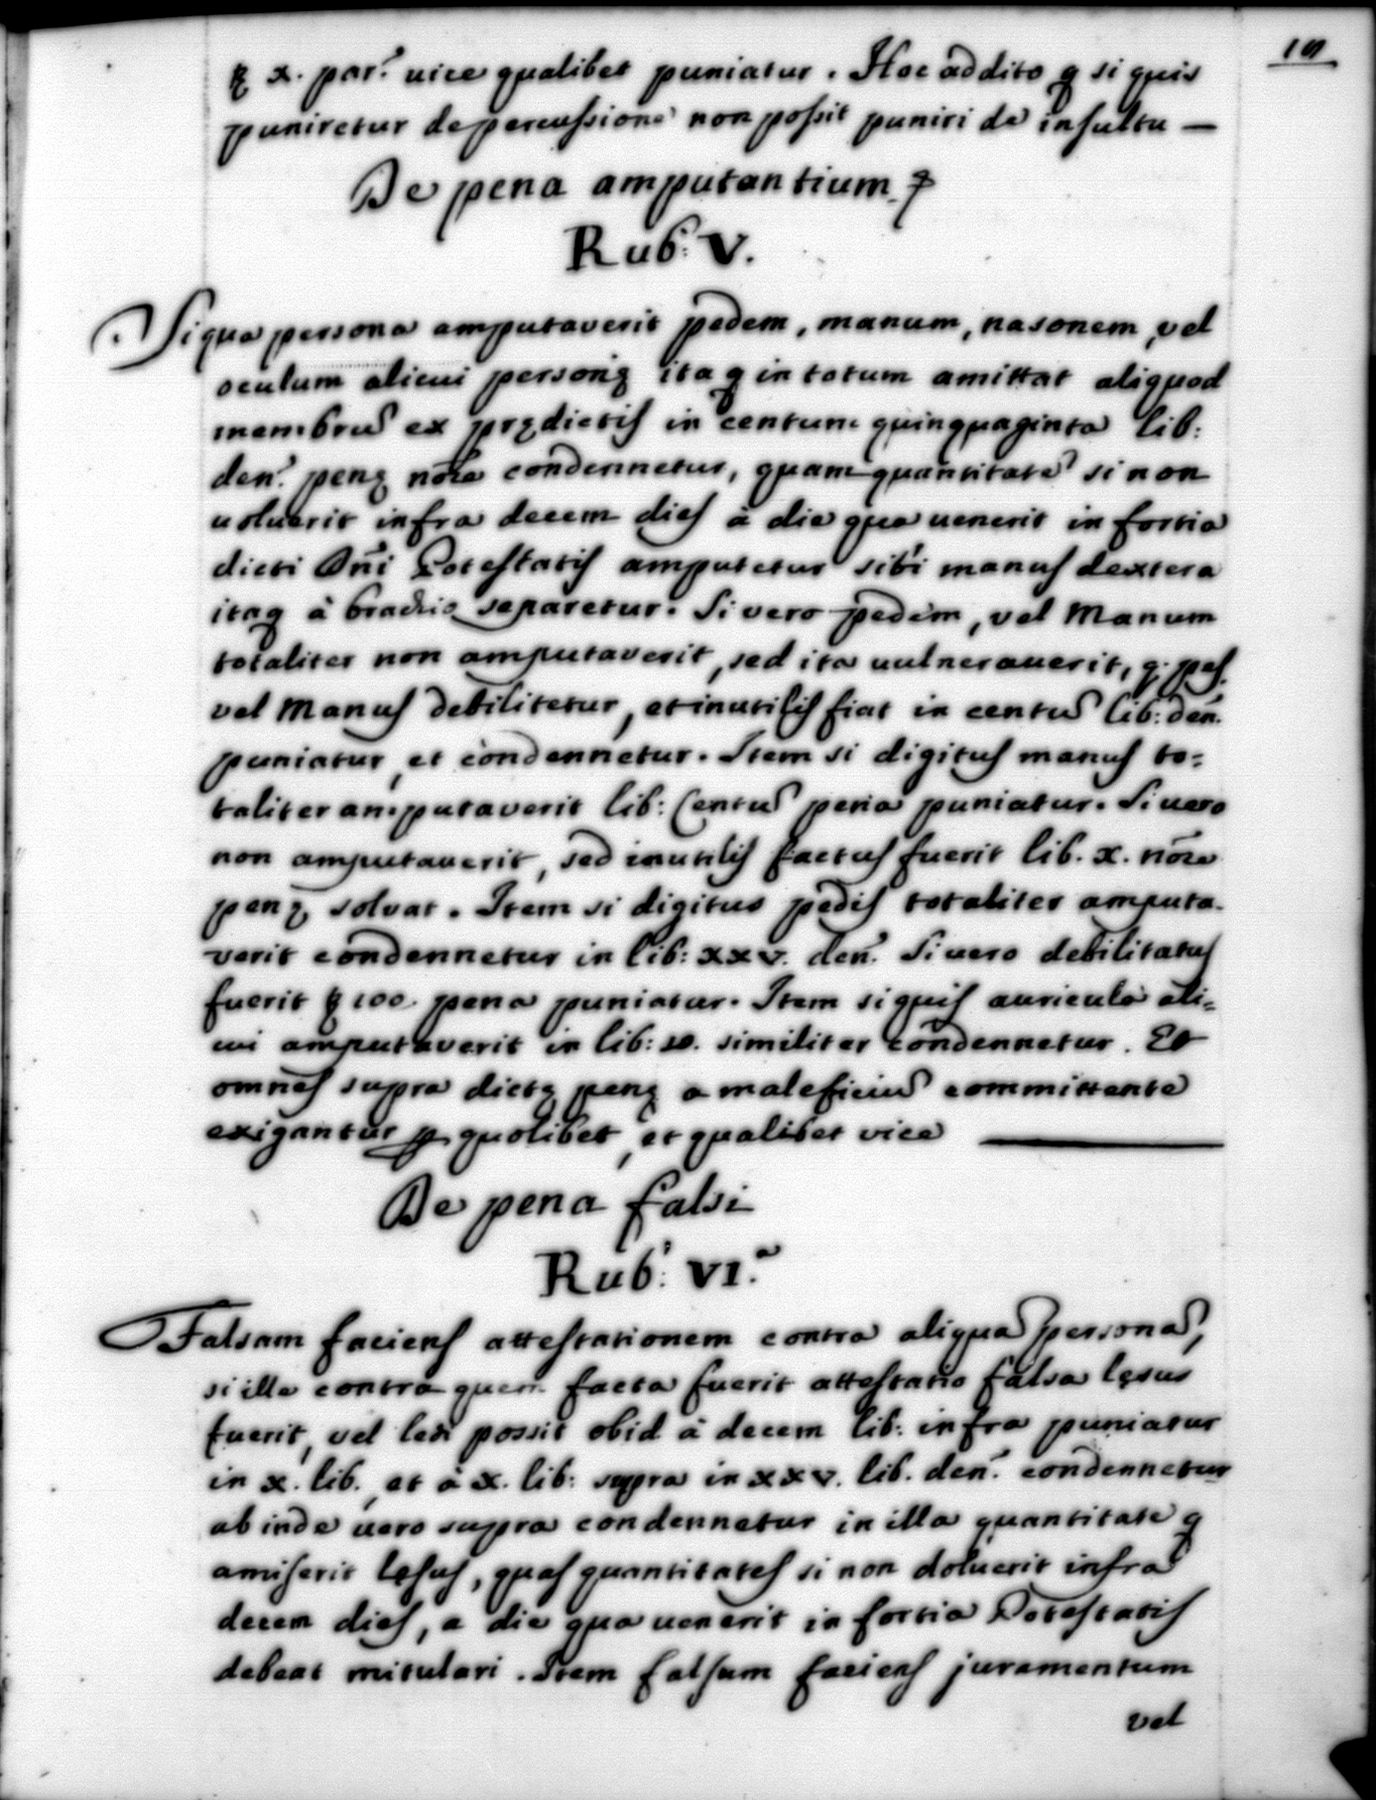 x. par. uice qualibet puniatur. Hoc addito q si quis
puniretur de percussione non possit puniri de insultu —
De pena amputantium
Rub: V.
Si qua persona amputaverit pedem, manum, nasonem, vel
oculum alicui personę ita q in totum amittat aliquod
membrū ex prędictis in centum quinquaginta lib:
den. penę nõie condennetur, quam quantitatē si non
uoluerit infra decem dies à die qua uenerit in fortia
dicti Dñi Potestatis amputetur sibi manus dextera
itaq à brachio separetur. Si vero pedem, vel Manum
totaliter non amputaverit, sed ita uulnerauerit, q. pes
vel Manus debilitetur, et inutilis fiat in centū lib: den.
puniatur, et condennetur. Item si digitus manus to-
taliter amputaverit lib: Centū pena puniatur. Si uero
non amputauerit, sed inutilis factus fuerit lib. x. nõie
penę solvat. Item si digitus pedis totaliter amputa-
verit condennetur in lib: xxv. den. Si uero debilitatus
fuerit 100. pena puniatur. Item si quis auriculã ali-
cui amputaverit in lib: similiter condennetur. Et
omnes supra dictę penę a maleficiū committente
exigantur p quolibet, et qualibet vice
De pena falsi
Rub: VI.a
Falsam faciens attestationem contra aliquā personā,
si ille contra quem facta fuerit attestatio falsa lęsus
fuerit, vel ledi possit obid à decem lib: infra puniatur
in x. lib., et à x. lib: supra in xxv. lib. den. condennetur
ab inde uero supra condennetur in illa quantitate q
amiserit lęsus, quas quantitates si non soluerit infra
decem dies, a die qua uenerit in fortia Potestatis
debeat mitulari. Item falsum faciens juramentum
vel